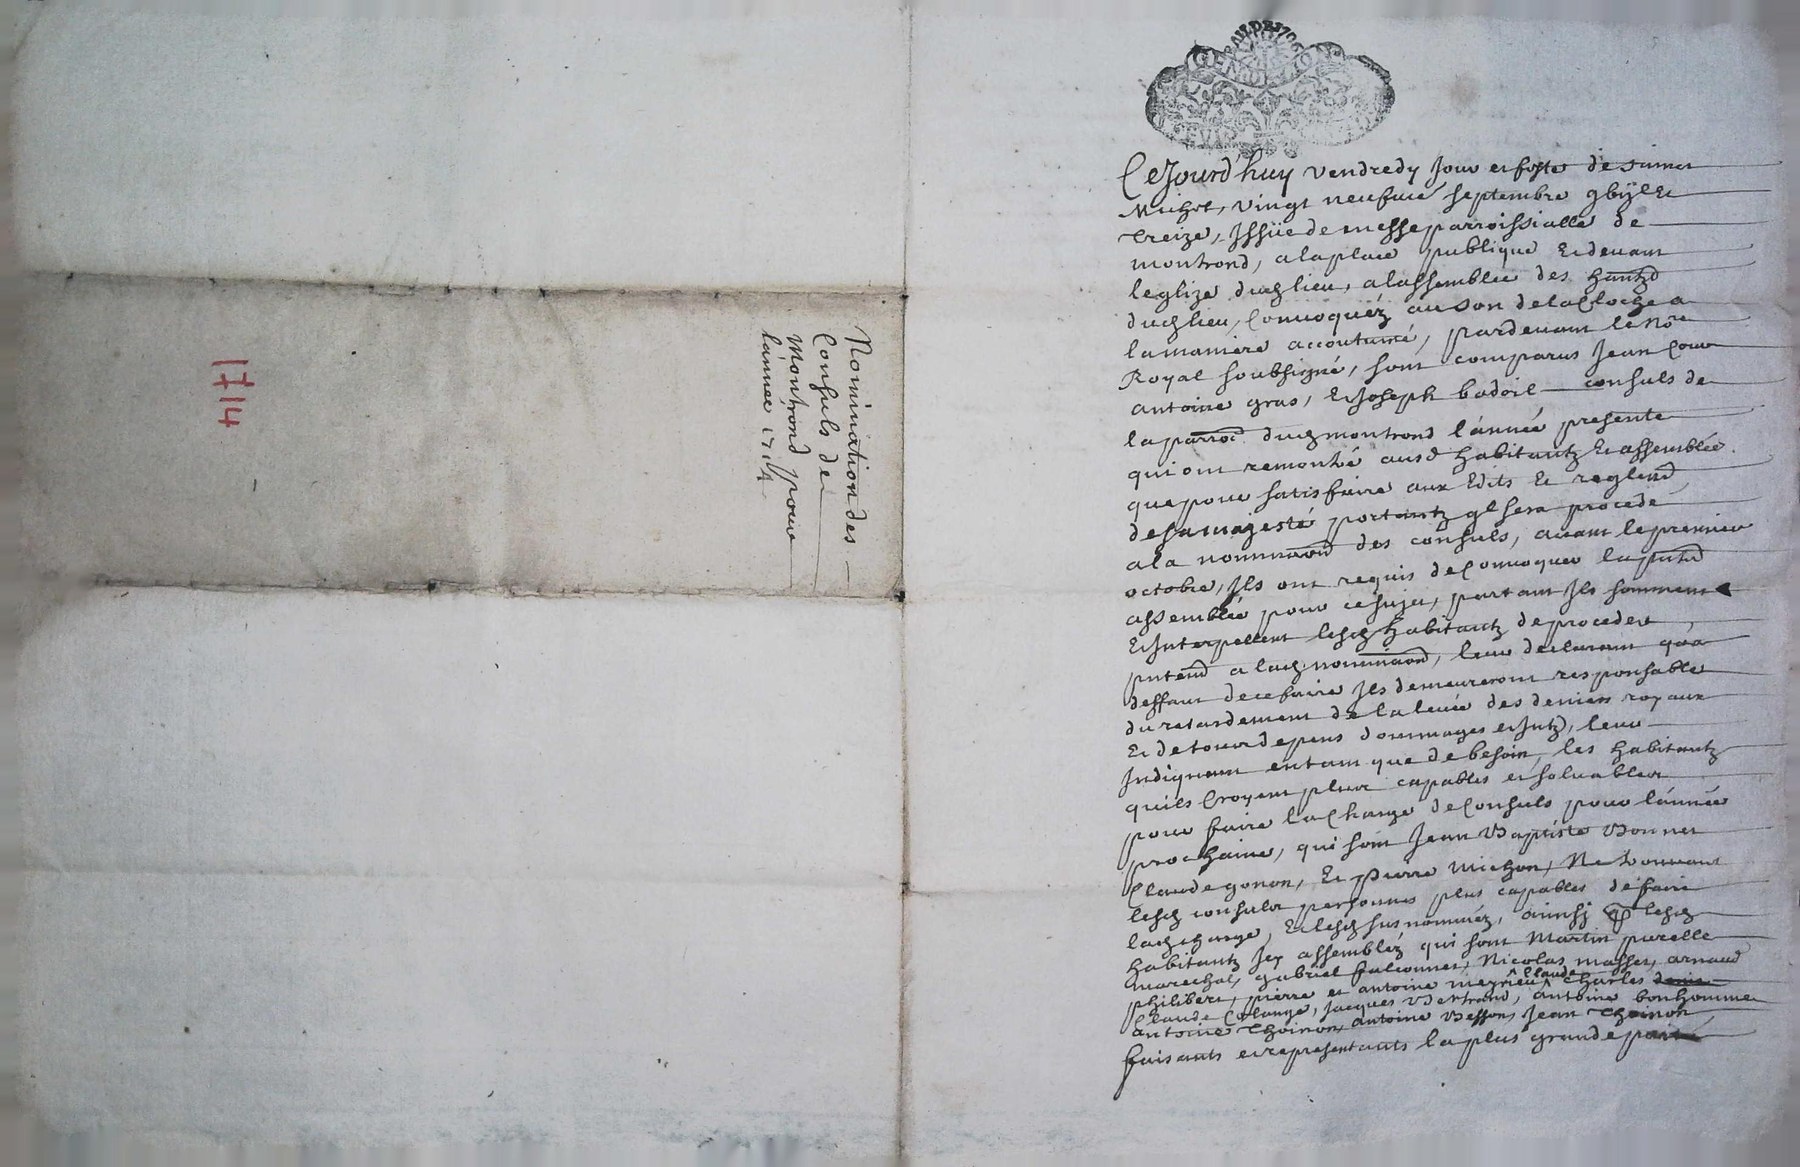 1714
Nomination des
Consuls de
Montrond pour
lannee 1714
GENERA
Cejourd'huy vendredy jour et feste de saint
Michel, vingt neufvie septembre gbijC et
treize, Issüe de messe parroissialle de
montrond, a la place publique et devant
leglize dud lieu, a lassemblée des hantzd
dud lieu, Convoquéz au son de la Cloche a
la maniere accoutumé, pardevant le Nore
Royal soubsigné, sont comparus Jean Cour
antoine gras, et Joseph badoil consuls de
la parroē dud montrond lánnée presente
qui ont remontré ausd habitantz et assemblée
que pour satisfaire aux Edits et reglemd
de sa majesté portantz ql sera procedé
a la nominaōn des consuls, avant le premier
octobre, Ils ont requis de Convoquer la pntē
assemblée pour ce sujet, partant Ils somment
et Interpellent lesd habitantz de proceder
pntemd a lad nominaōn, leur declarant qua
deffaut de ce faire Ils demeureront responsable
du retardement de la levée des deniers royaux
et de tour depens dommages et Intz, leur
Indiquant en tant que de besoin, les habitantz
quils Croyent plus capables et solvables
pour faire la Charge de Consuls pour lánnée
prochaine, qui sont Jean Baptiste Bonnet
Claude gonon, et pierre Michon, Ne trouvant
lesd consuls personnes plus capables de faire
lad charge, et lesd susnommez, ainsy que lesd
habitantz Icy assemblez qui sont Martin purelle
marechal, gabriel falconnet, Nicolas masset, arnaud
philibert, pierre et antoine meyrieu ^Claude Charles
Claude Colange, Jacques Bertrand, antoine bonhomme
antoine thoinon, antoine Besson, Jean thoinon,
faisants et representants la plus grande partie